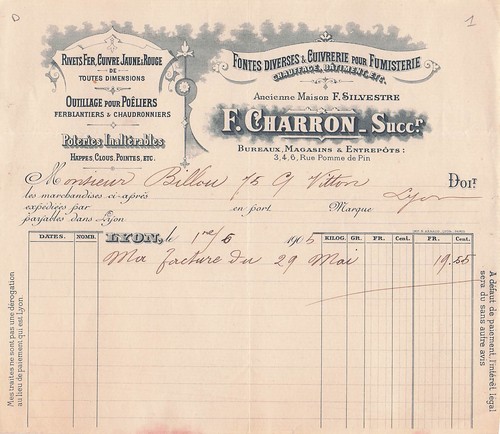 D
1
RIVETS FER, CUIVRE JAUNE & ROUGE
DE
TOUTES DIMENSIONS
OUTILLAGE POUR POÊLIERS
FERBLANTIERS & CHAUDRONNIERS
Poteries Inaltérables
HAPPES, CLOUS, POINTES, ETC.
FONTES DIVERSES & CUIVRERIE POUR FUMISTERIE
CHAUFFAGE, BÂTIMENT, ETC.
Ancienne Maison F. SILVESTRE
F. CHARRON - Succr.
BUREAUX, MAGASINS & ENTREPÔTS:
3,4,6, Rue Pomme de Pin
Monsieur Billou 75 C Vitton Lyon Doit
les marchandises ci-après
expédiées par en port Marque
payables dans Lyon.
DATES. NOMB. LYON, le 1re/6 1905 KILOG. GR. FR. Cent. FR. Cent.
Ma facture du 29 Mai 19.55
Mes traites ne sont pas une dérogation
au lieu de paiement qui est Lyon.
A défaut de paiement, l'intérêt légal
sera dû sans autre avis